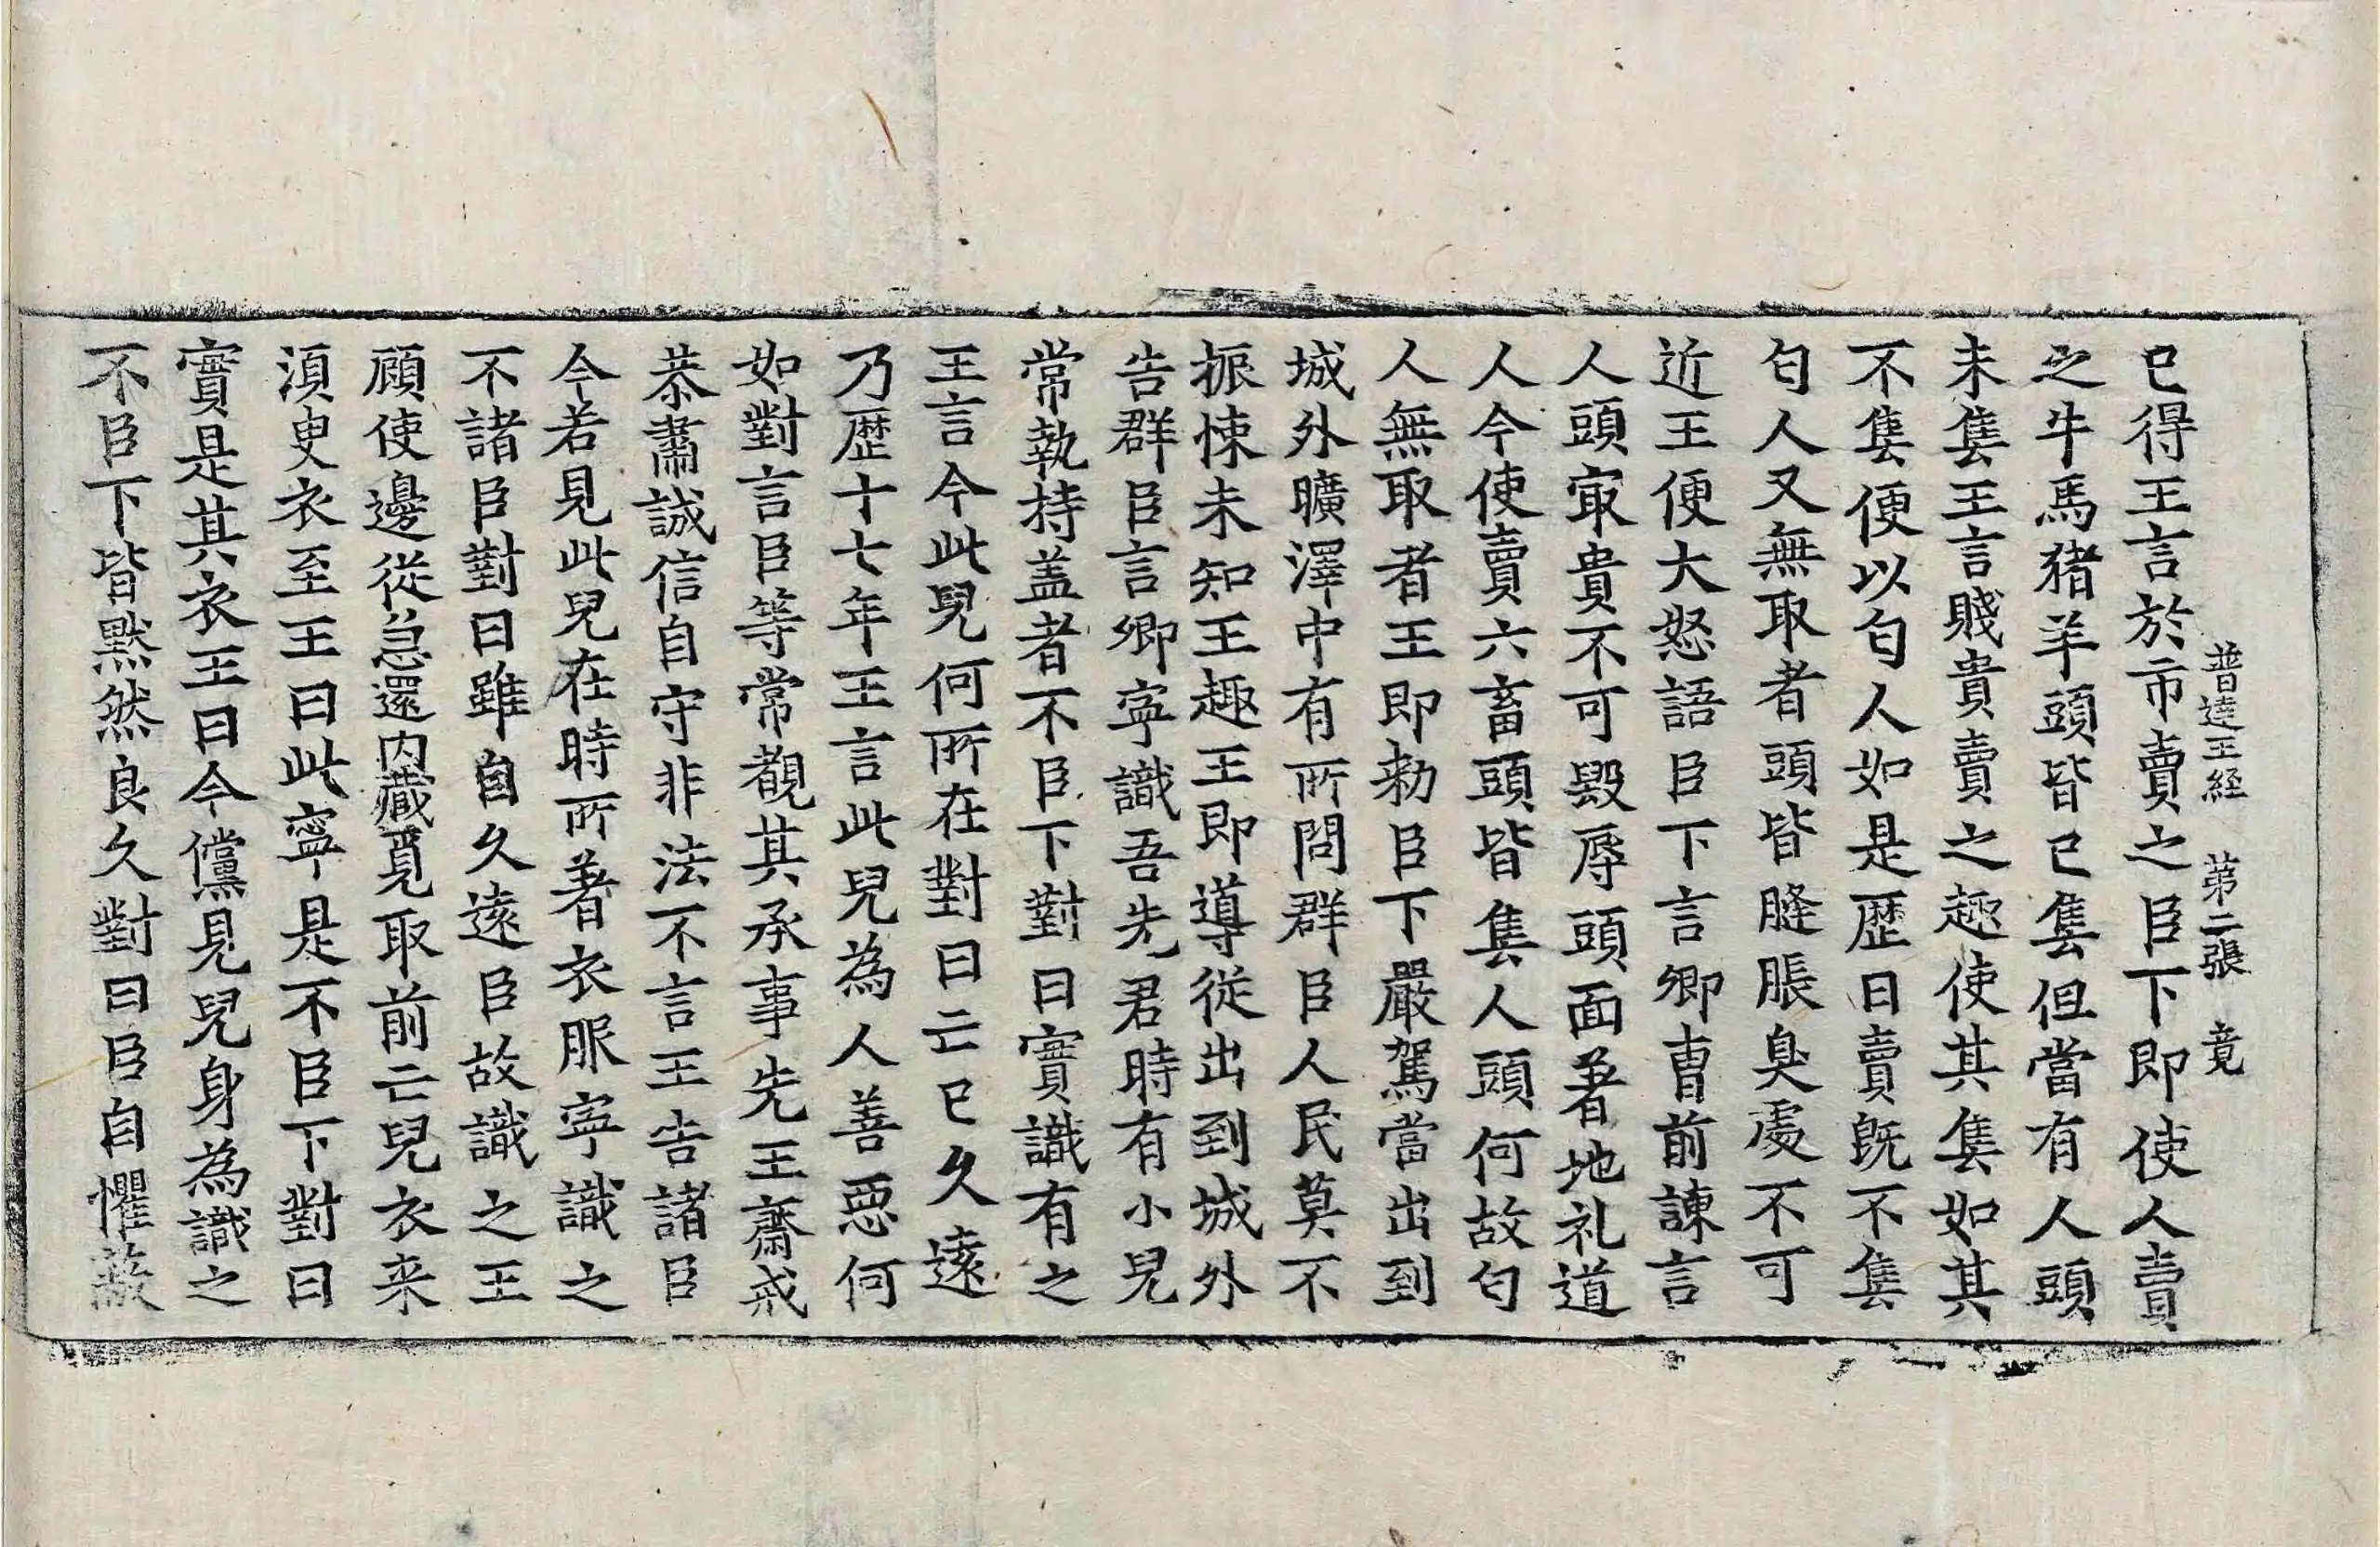 普達王経　第二張　竟
已得王言於市賣之臣下即使人賣
之牛馬猪羊頭皆已售但當有人頭
未售王言賤貴賣之趣使其售如其
不售便以匄人如是歴日賣既不售
匄人又無取者頭皆膖脹臭處不可
近王便大怒語臣下言卿曹前諫言
人頭冣貴不可毀辱頭面著地礼道
人今使賣六畜頭皆售人頭何故匄
人無取者王即勑臣下嚴駕當出到
城外曠澤中有所問群臣人民莫不
振悚未知王趣王即導從出到城外
告群臣言卿寧識吾先君時有小兒
常執持盖者不臣下對曰實識有之
王言今此兒何所在對曰亡已久遠
乃歴十七年王言此兒為人善惡何
如對言臣等常覩其承事先王齋戒
恭肅誠信自守非法不言王告諸臣
今若見此兒在時所著衣服寧識之
不諸臣對曰雖自久遠臣故識之王
顧使邊從急還内藏覓取前亡兒衣来
湏臾衣至王曰此寧是不臣下對曰
實是其衣王曰今儻見兒身為識之
不臣下皆黙然良久對曰臣自懼蔽